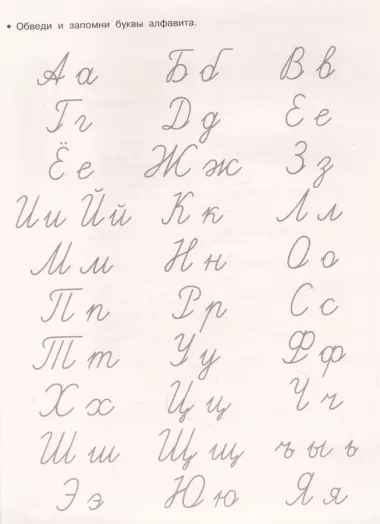 • Обведи и запомни буквы алфавита.
А а Б б В в
Г г Д д Е е
Ё е Ж ж З з
И и Й й К к Л л
М м Н н О о
П п Р р С с
Т т У у Ф ф
Х х Ц ц Ч ч
Ш ш Щ щ ъ ы ь
Э э Ю ю Я я